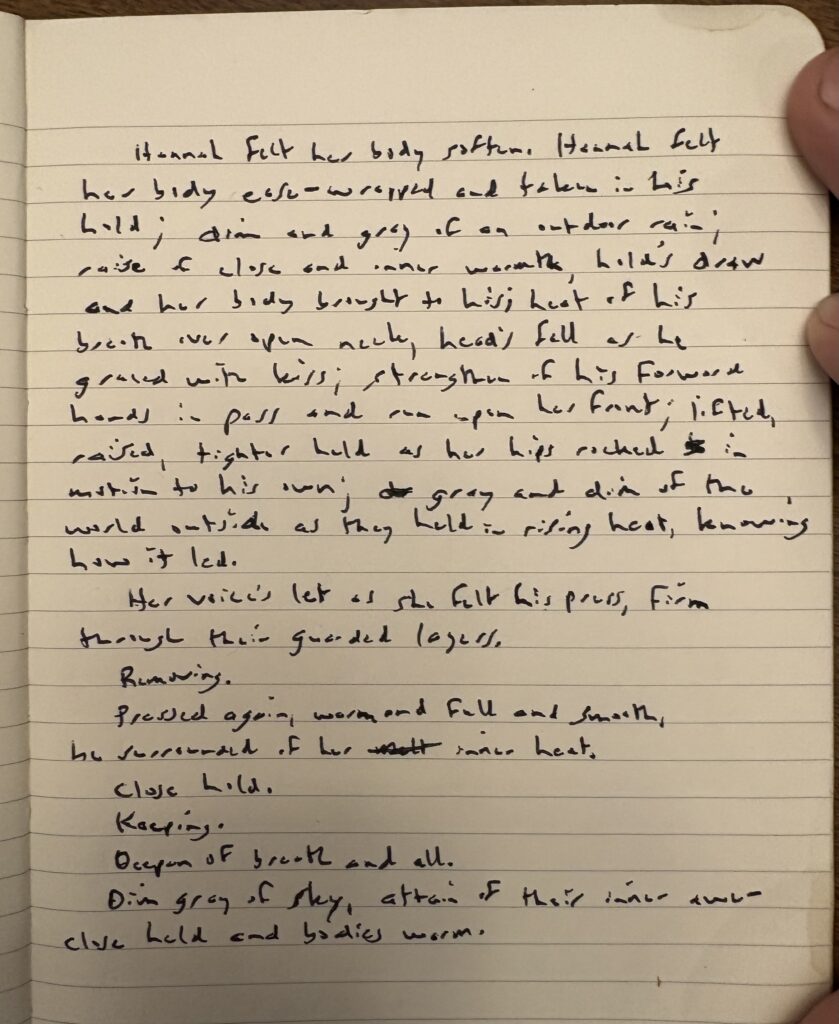 Hannah felt her body soften. Hannah felt
her body ease-wrapped and taken in his
hold; dim and gray of an outdoor rain;
raise of close and inner warmth, hold's draw
and her body brought to his; heat of his
breath over open neck, head's fall as he
grazed with kiss; strengthen of his forward
hands in pass and run upon her front; lifted,
raised, tighter held as her hips rocked in
motion to his own; gray and dim of the
world outside as they held in rising heat, knowing
how it led.
Her voice's let as she felt his press, firm
through their guarded layers.
Removing.
Pressed again, warm and full and smooth,
he surrounded of her inner heat.
Close hold.
Keeping.
Deepen of breath and all.
Dim gray of sky, attain of their inner awe-
close held and bodies warm.